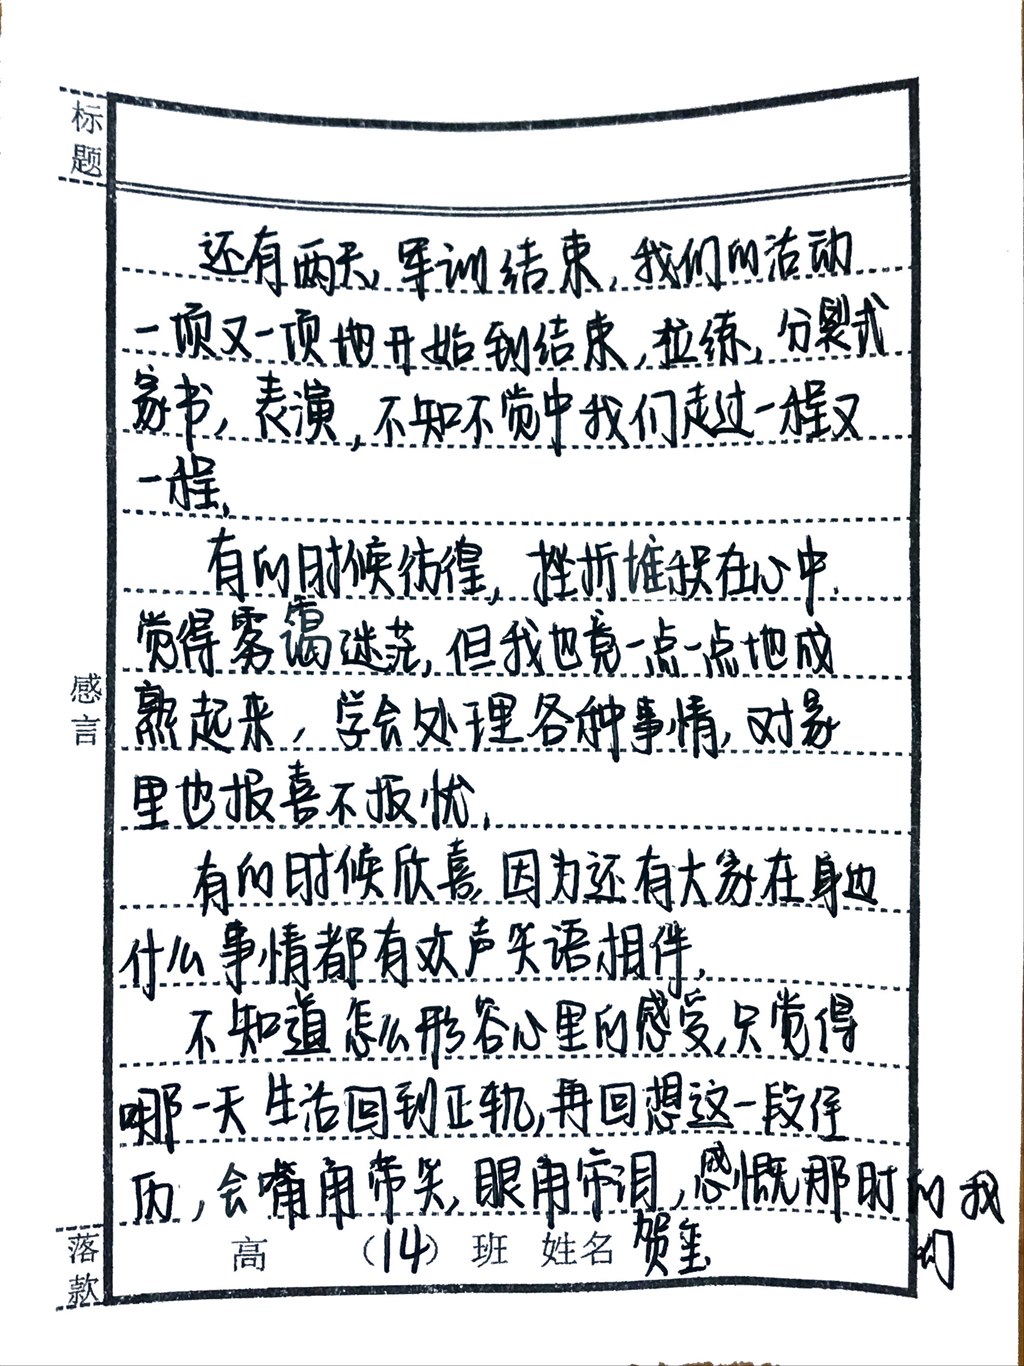 标题
还有两天,军训结束,我们的活动
一项又一项地开始到结束,拉练,分裂式
家书,表演,不知不觉中我们走过一程又
一程.
有的时候彷徨,挫折堆积在心中.
觉得雾霭迷茫,但我也竟一点一点地成
熟起来,学会处理各种事情,对家
里也报喜不报忧.
感言
有的时候欣喜,因为还有大家在身边
什么事情都有欢声笑语相伴.
不知道怎么形容心里的感受,只觉得
哪一天生活回到正轨,再回想这一段经
历,会嘴角带笑,眼角带泪,感慨那时的我
们
落款 高 (14) 班 姓名 贺